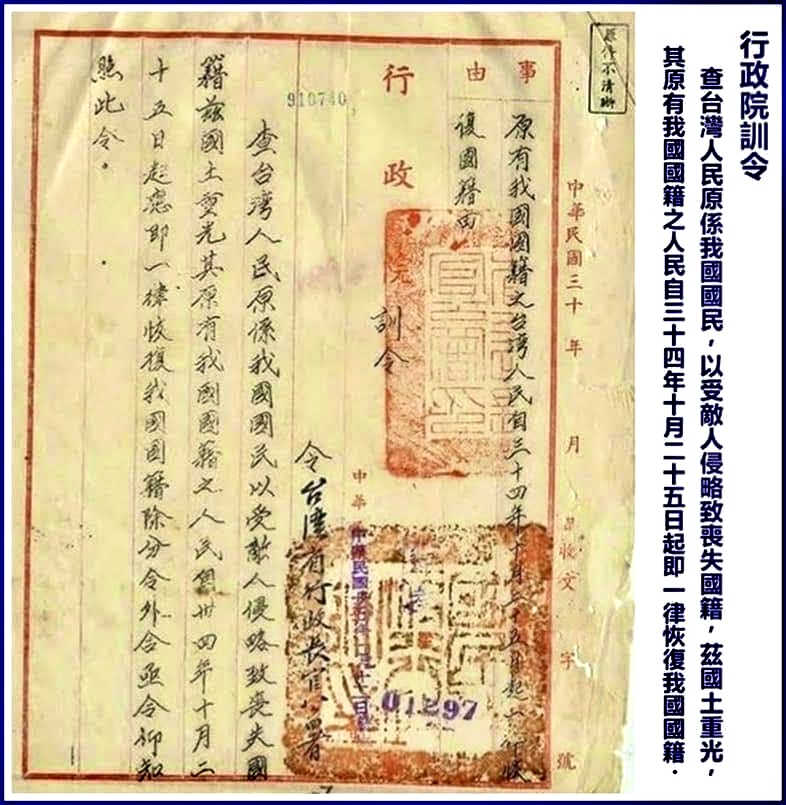 行政院訓令
查台灣人民原係我國國民，以受敵人侵略致喪失國籍，茲國土重光，
其原有我國國籍之人民自三十四年十月二十五日起即一律恢復我國國籍．
原件不清晰
中華民國三十年 月 日收文 字 號
事由
原有我國國籍之台灣人民自三十四年十月二十五日起一律恢
復國籍由
行政院訓令
中華民國 年一月十二日
01297
令台灣省行政長官公署
910740
查台灣人民原係我國國民以受敵人侵略致喪失國
籍茲國土重光其原有我國國籍之人民自卅四年十月二
十五日起應即一律恢復我國國籍除分令外合亟令仰知
照此令。